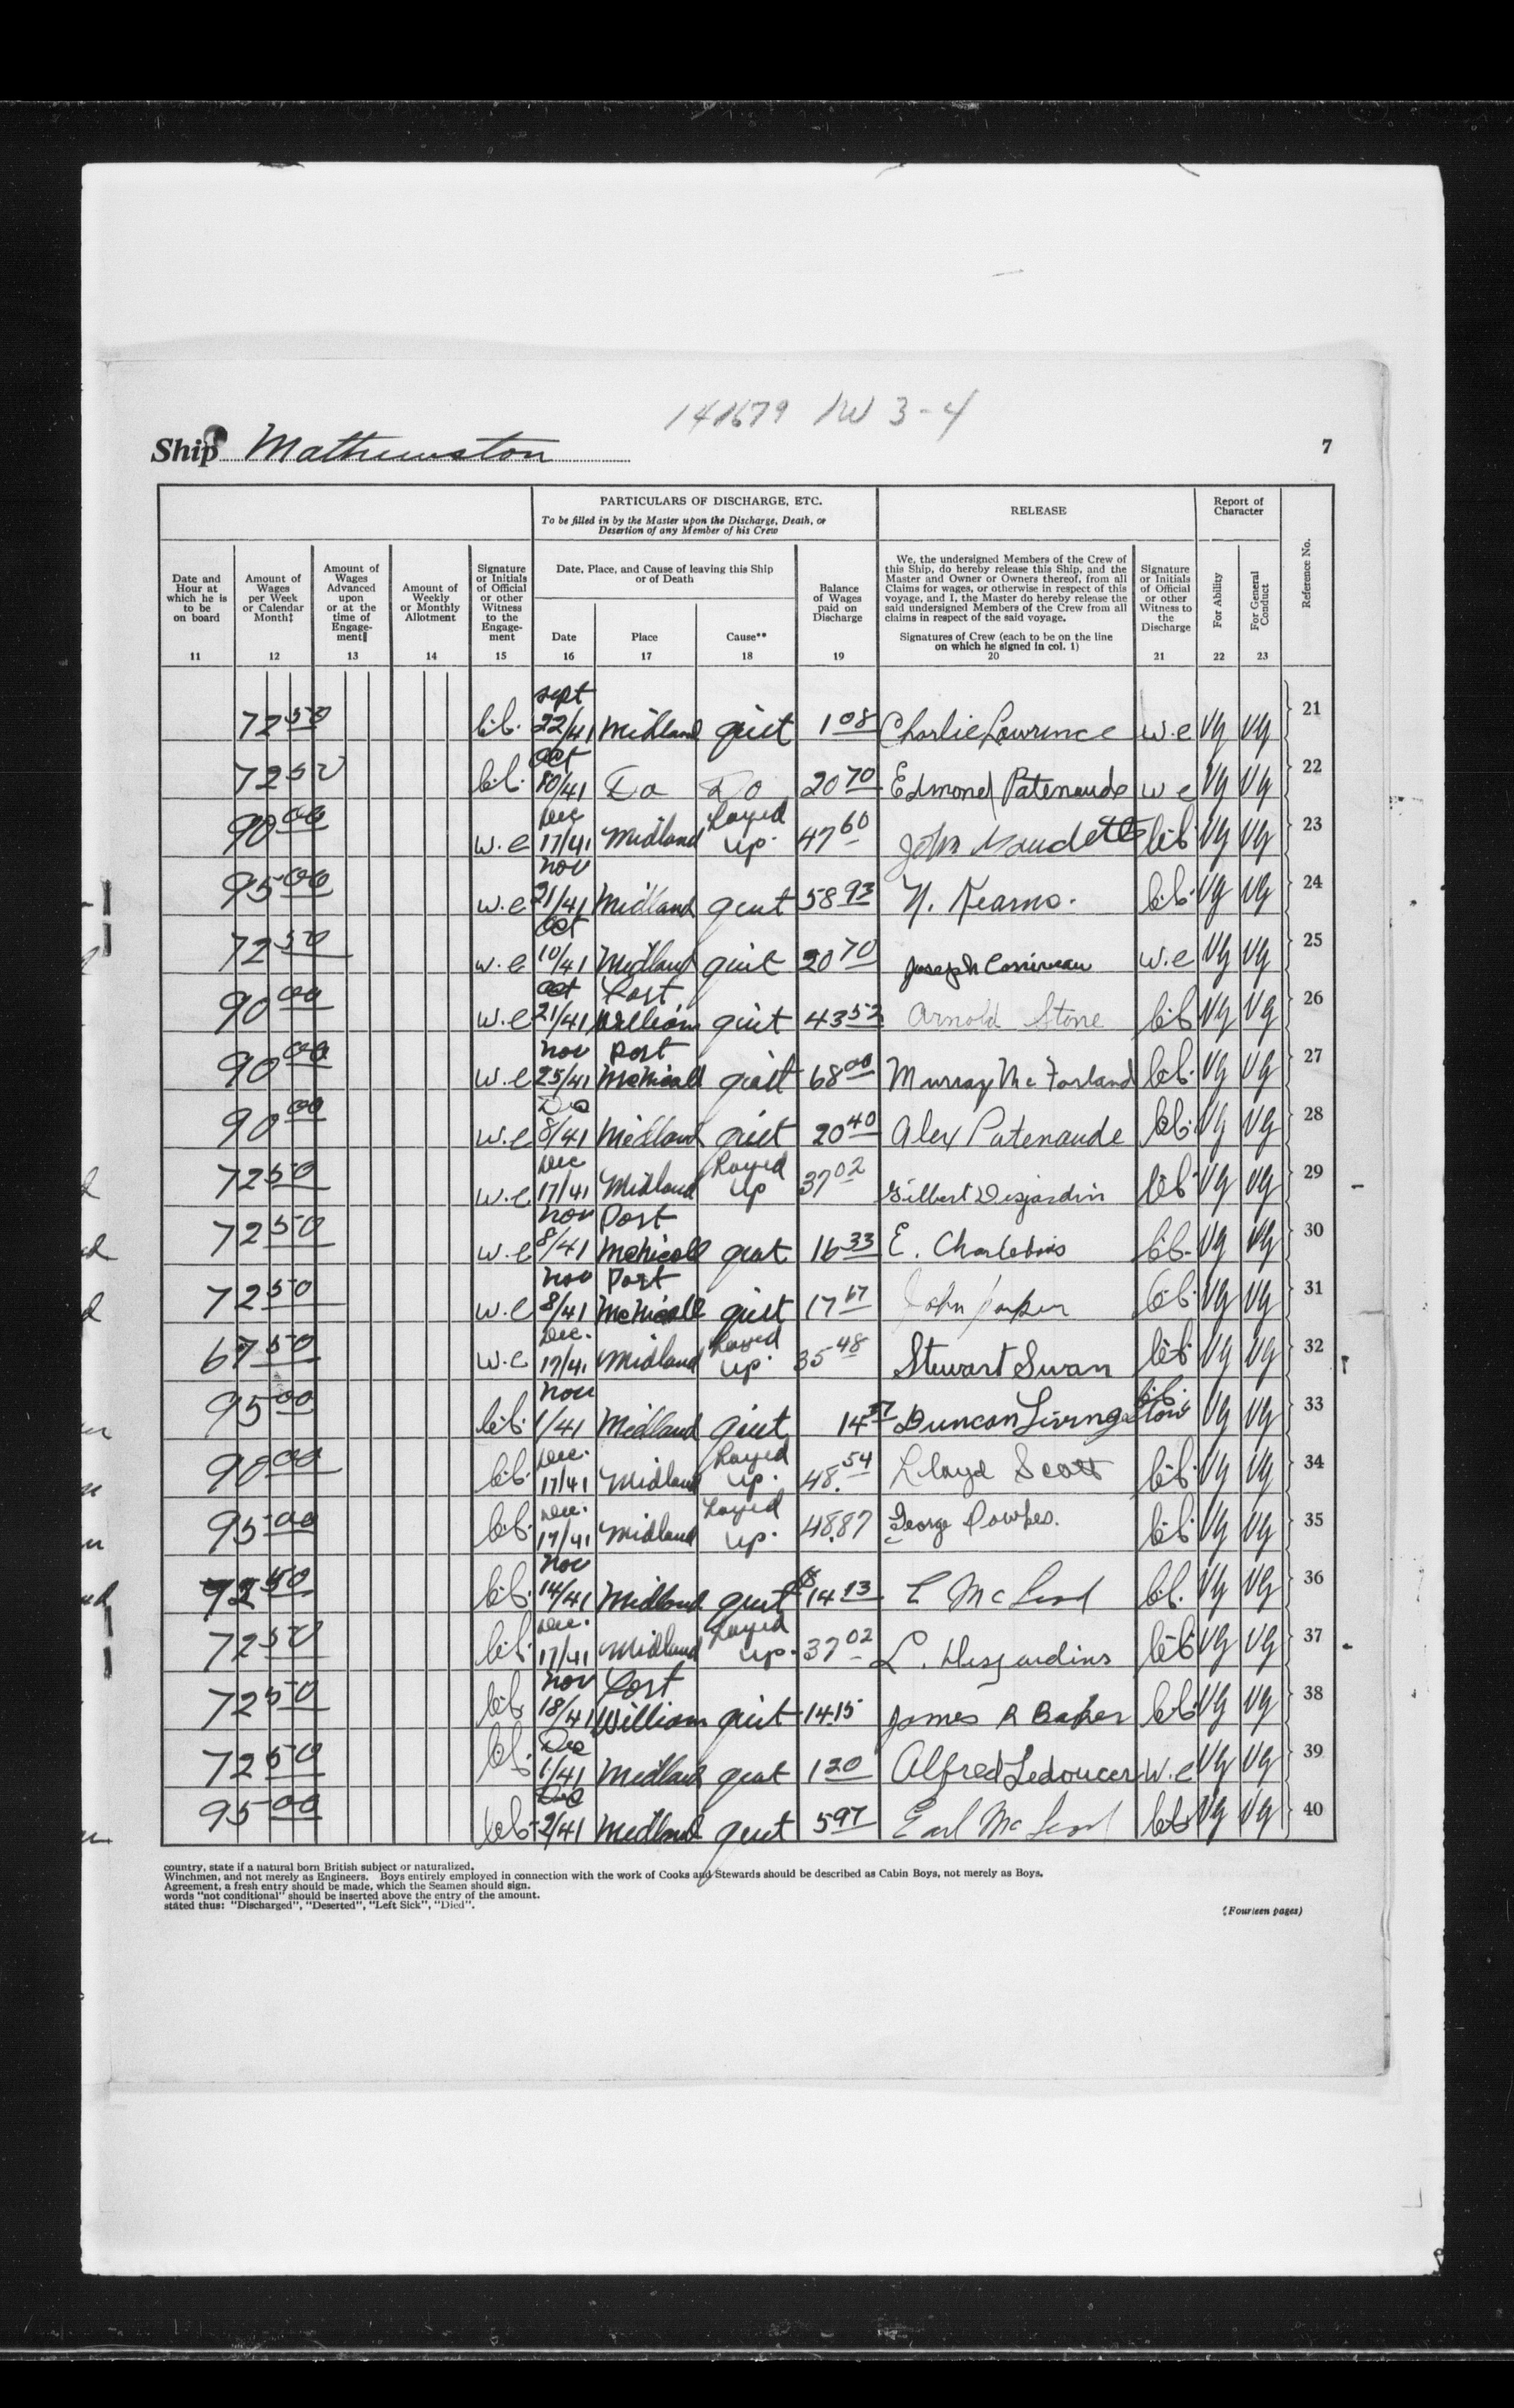 141679 1W 3-4
Ship Mathewston
7
PARTICULARS OF DISCHARGE, ETC.
To be filled in by the Master upon the Discharge, Death, or Desertion of any Member of his Crew
RELEASE
Report of Character
Date and Hour at which he is to be on board
Amount of Wages per Week or Calendar Month‡
Amount of Wages Advanced upon or at the time of Engagement‖
Amount of Weekly or Monthly Allotment
Signature or Initials of Official or other Witness to the Engagement
Date, Place, and Cause of leaving this Ship or of Death
Date
Place
Cause**
Balance of Wages paid on Discharge
We, the undersigned Members of the Crew of this Ship, do hereby release this Ship, and the Master and Owner or Owners thereof, from all Claims for wages, or otherwise in respect of this voyage, and I, the Master do hereby release the said undersigned Members of the Crew from all claims in respect of the said voyage.
Signatures of Crew (each to be on the line on which he signed in col. 1)
Signature or Initials of Official or other Witness to the Discharge
For Ability
For General Conduct
Reference No.
11 12 13 14 15 16 17 18 19 20 21 22 23
72 50 Sept 22/41 Midland quit 1 08 Charlie Lawrence w.e Vg Vg 21
72 50 Oct 10/41 Do Do 20 70 Edmond Patenaude w e Vg Vg 22
90 00 w.e Dec 17/41 Midland Layed up. 47 60 John Vaudette Vg Vg 23
95 00 w.e Nov 21/41 Midland quit 58 93 N. Kearns. Vg Vg 24
72 50 w.e Oct 10/41 Midland quit 20 70 Joseph w.e Vg Vg 25
90 00 w.e Oct 21/41 Port William quit 43 52 Arnold Stone Vg Vg 26
90 00 w.e Nov 25/41 Port McNicoll quit 68 00 Murray McFarland Vg Vg 27
90 00 w.e Do 8/41 Midland quit 20 40 Alex Patenaude Vg Vg 28
72 50 w.e Dec 17/41 Midland Layed up 37 02 Gilbert Desjardin Vg Vg 29
72 50 w.e Nov 8/41 Port McNicoll quit 16 33 E. Charlebois Vg Vg 30
72 50 w.e Nov 8/41 Port McNicoll quit 17 67 John Vg Vg 31
67 50 w.e Dec. 17/41 Midland Layed up. 35 48 Stewart Swan Vg Vg 32
95 00 Nov 1/41 Midland quit 14 57 Duncan Livingstone Vg Vg 33
90 00 Dec. 17/41 Midland Layed up. 48.54 Lloyd Scott Vg Vg 34
95 00 Dec. 17/41 Midland Layed up. 48.87 George Vg Vg 35
72 50 Nov 14/41 Midland quit 14 13 McLeod Vg Vg 36
72 50 Dec. 17/41 Midland Layed up. 37 02 L. Desjardins Vg Vg 37
72 50 Nov 18/41 Port William quit 14.15 James R Baker Vg Vg 38
72 50 Dec 1/41 Midland quit 1 20 Alfred Ledoucer w.e Vg Vg 39
95 00 Dec 2/41 Midland quit 5 97 Earl McLeod Vg Vg 40
country, state if a natural born British subject or naturalized.
Winchmen, and not merely as Engineers. Boys entirely employed in connection with the work of Cooks and Stewards should be described as Cabin Boys, not merely as Boys.
Agreement, a fresh entry should be made, which the Seamen should sign.
words "not conditional" should be inserted above the entry of the amount.
stated thus: "Discharged", "Deserted", "Left Sick", "Died".
(Fourteen pages)